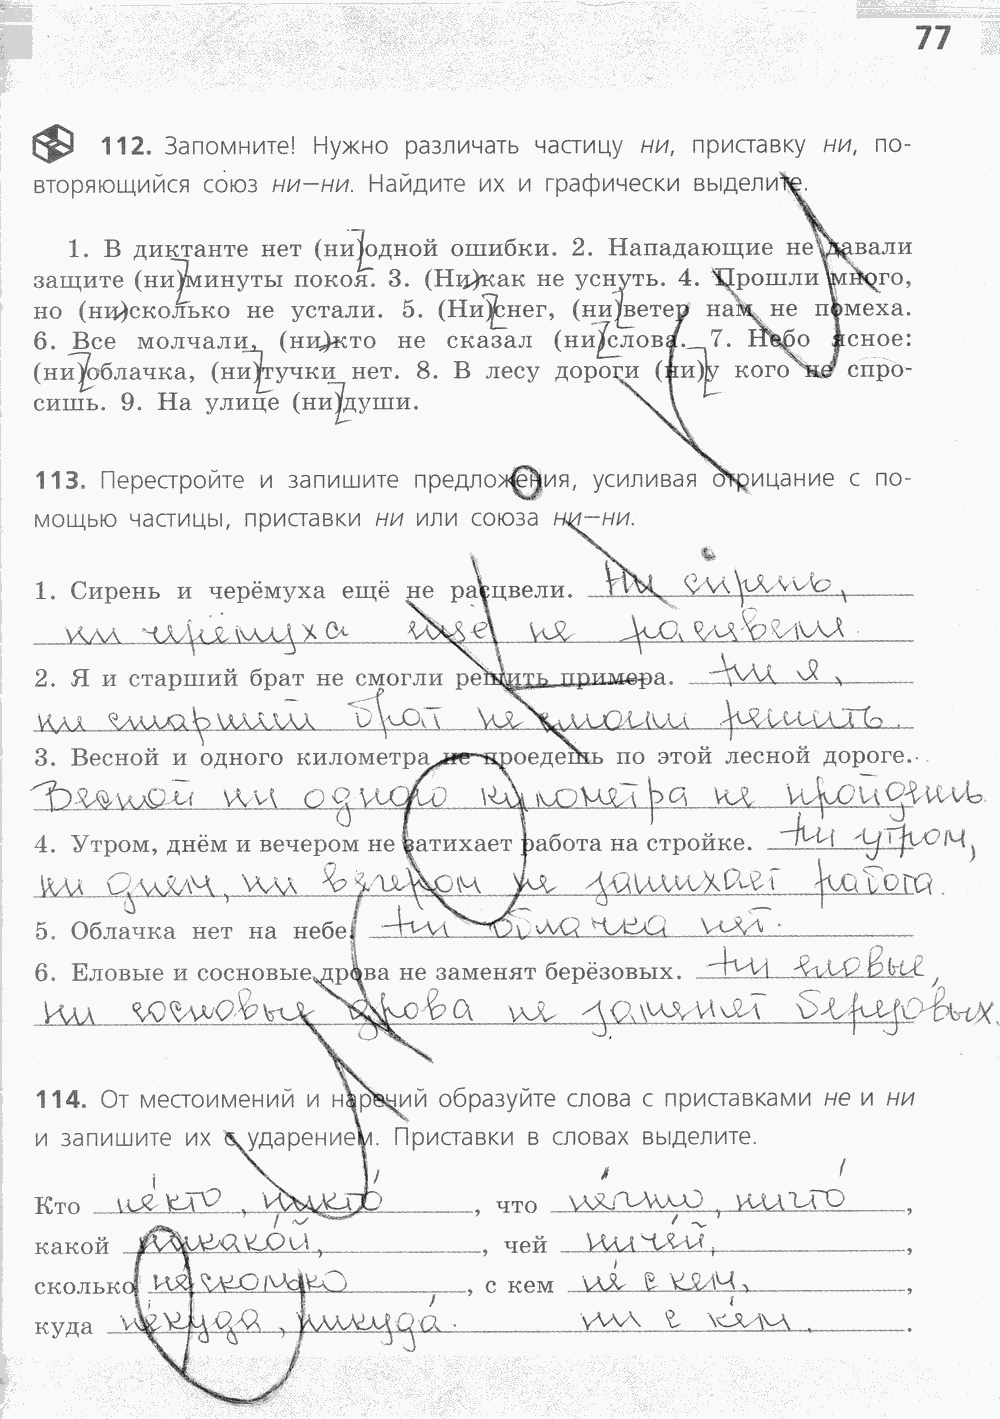 77
112. Запомните! Нужно различать частицу ни, приставку ни, по-
вторяющийся союз ни—ни. Найдите их и графически выделите.
1. В диктанте нет (ни)одной ошибки. 2. Нападающие не давали
защите (ни)минуты покоя. 3. (Ни)как не уснуть. 4. Прошли много,
но (ни)сколько не устали. 5. (Ни)снег, (ни)ветер нам не помеха.
6. Все молчали, (ни)кто не сказал (ни)слова. 7. Небо ясное:
(ни)облачка, (ни)тучки нет. 8. В лесу дороги (ни)у кого не спро-
сишь. 9. На улице (ни)души.
113. Перестройте и запишите предложения, усиливая отрицание с по-
мощью частицы, приставки ни или союза ни—ни.
1. Сирень и черёмуха ещё не расцвели. Ни сирень,
ни черёмуха ещё не расцвели.
2. Я и старший брат не смогли решить примера. Ни я,
ни старший брат не смогли решить.
3. Весной и одного километра не проедешь по этой лесной дороге.
Весной ни одного километра не пройдешь
4. Утром, днём и вечером не затихает работа на стройке. Ни утром,
ни днем, ни вечером не затихает работа.
5. Облачка нет на небе. Ни облачка нет.
6. Еловые и сосновые дрова не заменят берёзовых. Ни еловые,
ни сосновые дрова не заменят березовых.
114. От местоимений и наречий образуйте слова с приставками не и ни
и запишите их с ударением. Приставки в словах выделите.
Кто не́кто, никто́, что не́что, ничто́,
какой никако́й, чей ниче́й,
сколько не́сколько, с кем не́ с кем,
куда не́куда, никуда́. ни с ке́м.